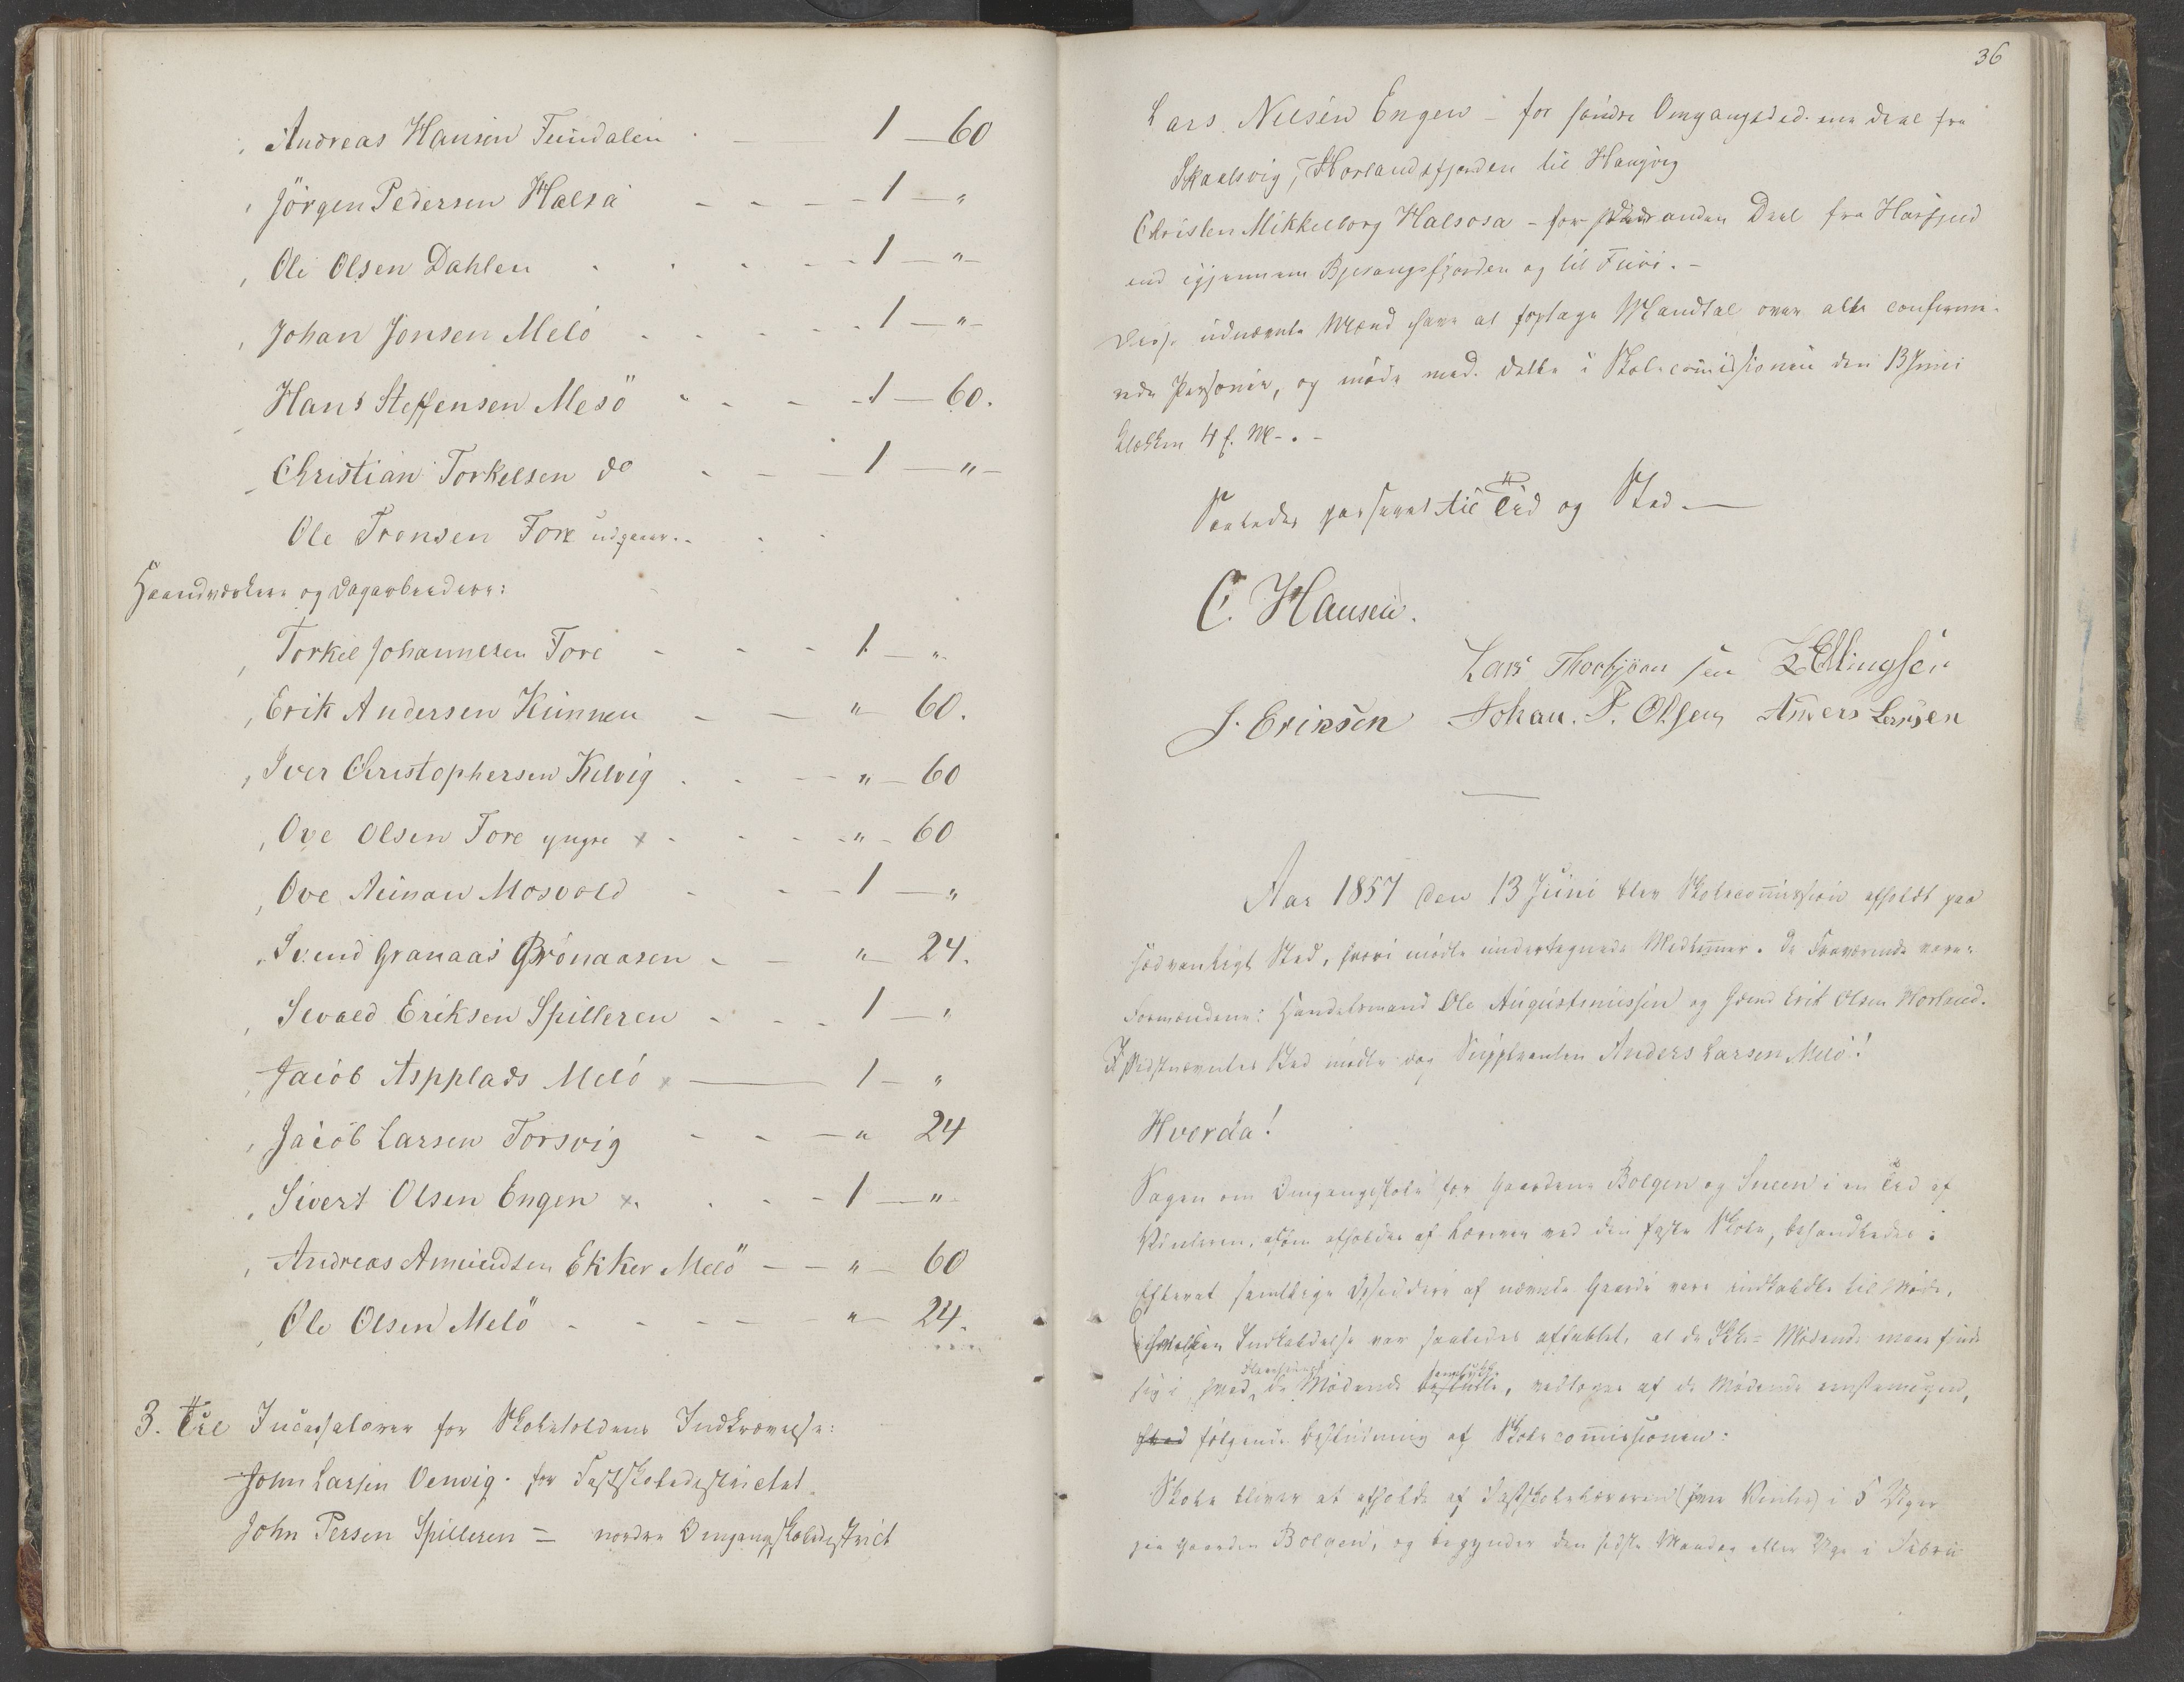 Andreas Hansen Fundalen - 1 - 60
Jörgen Pedersen Halsa - - - 1 - "
Ole Olsen Dahlen - - 1 - "
Johan Jonsen Melö - - 1 - "
Hans Steffensen Mesö " - - 1 - 60.
Christian Torkelsen do - - 1 - " -
Ole Fransen Fore udgaar.
Haandværkere og Dagarbeidere:
Torkel Johannesen Fore - - - 1 - "
Erik Andersen Kunnen - - " 60.
Iver Christophersen Kilvig - - " - 60
Ove Olsen Fore yngre x - - " - 60
Ove Mosvold - - 1 - "
Svend Granaas Grönaasen - - " 24.
Sevald Eriksen Spilleren - - - 1 - "
Jacob Aspplads Melö x - 1 - "
Jacob Larsen Forsvig - - - " 24
Sivert Olsen Engen x. - - 1 - "
Andreas Amundsen Ekker Melö - - " - 60
Ole Olsen Melö - - - " - 24.
3. Til Incassatorer for Skoletoldens Indkrævelse:
John Larsen Venvig - for Fastskoledistrictet.
John Persen Spilleren = nordre Omgangskoledistrict
36
Lars Nilsen Engen - for söndre Omgangsd. ene Deel fra
Skaalsvig, Horlandsfjorden til
Christen Mikkelborg Halsosa - for anden Deel fra
ind igjennem Bjerangsfjorden og til
Disse udnævnte Mænd have at foretage Mandtal over alle confirme-
rede Personer, og möde med dette i Skolecommissionen den 13 Juni
Klokken 4 f. M. -
Saaledes passeret til Tid og Sted -
C. Hansen.
Lars Thorbjörnsen Ellingsen
J. Eriksen Johan. P. Olsen Anders Larsen
Aar 1857 den 13 Juni blev Skolecommission afholdt paa
sædvanligt Sted, hvori mödte undertegnede Medlemer. De Fraværende vare:
Formændene: Handelsmand Ole Augustinussen og Gaard Erik Olsen Horland.
I Sidstnævntes Sted mödte dog Suppleanten Anders Larsen Melö!
Hvorda!
Sagen om Omgangsskole for Gaardene Bolgen og Sneen i en Tid af
Vinteren, som afholdes af Læreren ved den faste Skole, behandledes:
Efterat samtlige Opsiddere af nævnte Gaarde vare indkaldte til Möde,
hvilken Indkaldelse var saaledes affattet, at de Ikke-Mödende maae finde
sig i hvad de Mödende, vedtoges af de Mödende eenstemmigen,
følgende Beslutning af Skolecommissionen:
Skole bliver at afholde af Fastskolelæreren (hver Vinter) i 5 Uger
paa Gaarden Bolgen, og begynder den sidste Mandag eller Uge i Febru